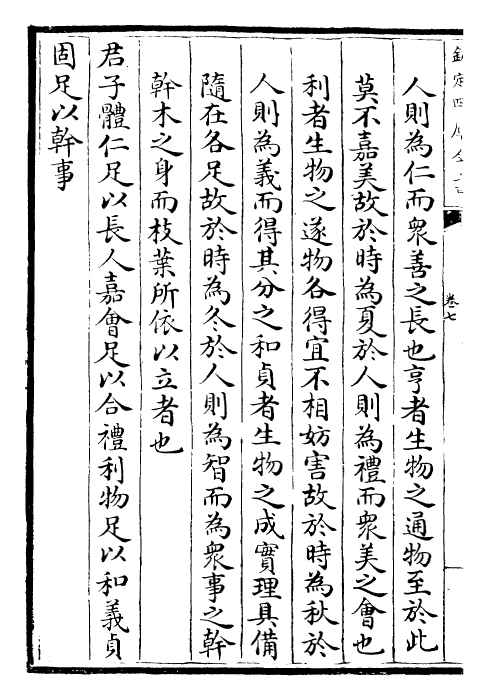 欽定四庫全書
卷七
人則為仁而衆善之長也亨者生物之通物至於此
莫不嘉美故於時為夏於人則為禮而衆美之會也
利者生物之遂物各得宜不相妨害故於時為秋於
人則為義而得其分之和貞者生物之成實理具備
隨在各足故於時為冬於人則為智而為衆事之幹
幹木之身而枝葉所依以立者也
君子體仁足以長人嘉會足以合禮利物足以和義貞
固足以幹事